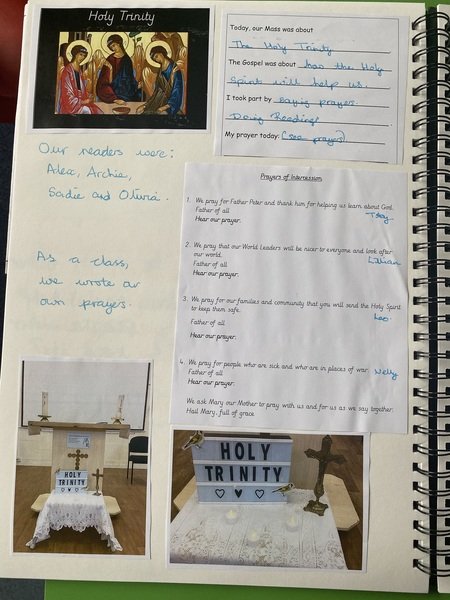 Holy Trinity
Today, our Mass was about
The Holy Trinity
The Gospel was about how the Holy
Spirit will help us.
I took part by saying prayers.
Doing Readings
My prayer today: (see prayer)
Our readers were:
Alex, Archie,
Sadie and Olivia.
As a class,
we wrote our
own prayers.
Prayers of Intercession
1. We pray for Father Peter and thank him for helping us learn about God.
Father of all
Toby
Hear our prayer.
2. We pray that our World Leaders will be nicer to everyone and look after
our world.
Lillian
Father of all
Hear our prayer.
3. We pray for our families and community that you will send the Holy Spirit
to keep them safe.
Leo
Father of all
Hear our prayer.
4. We pray for people who are sick and who are in places of war.
Father of all
Hear our prayer.
We ask Mary our Mother to pray with us and for us as we say together.
Hail Mary, full of grace
HOLY
TRINITY
HOLY
TRINITY